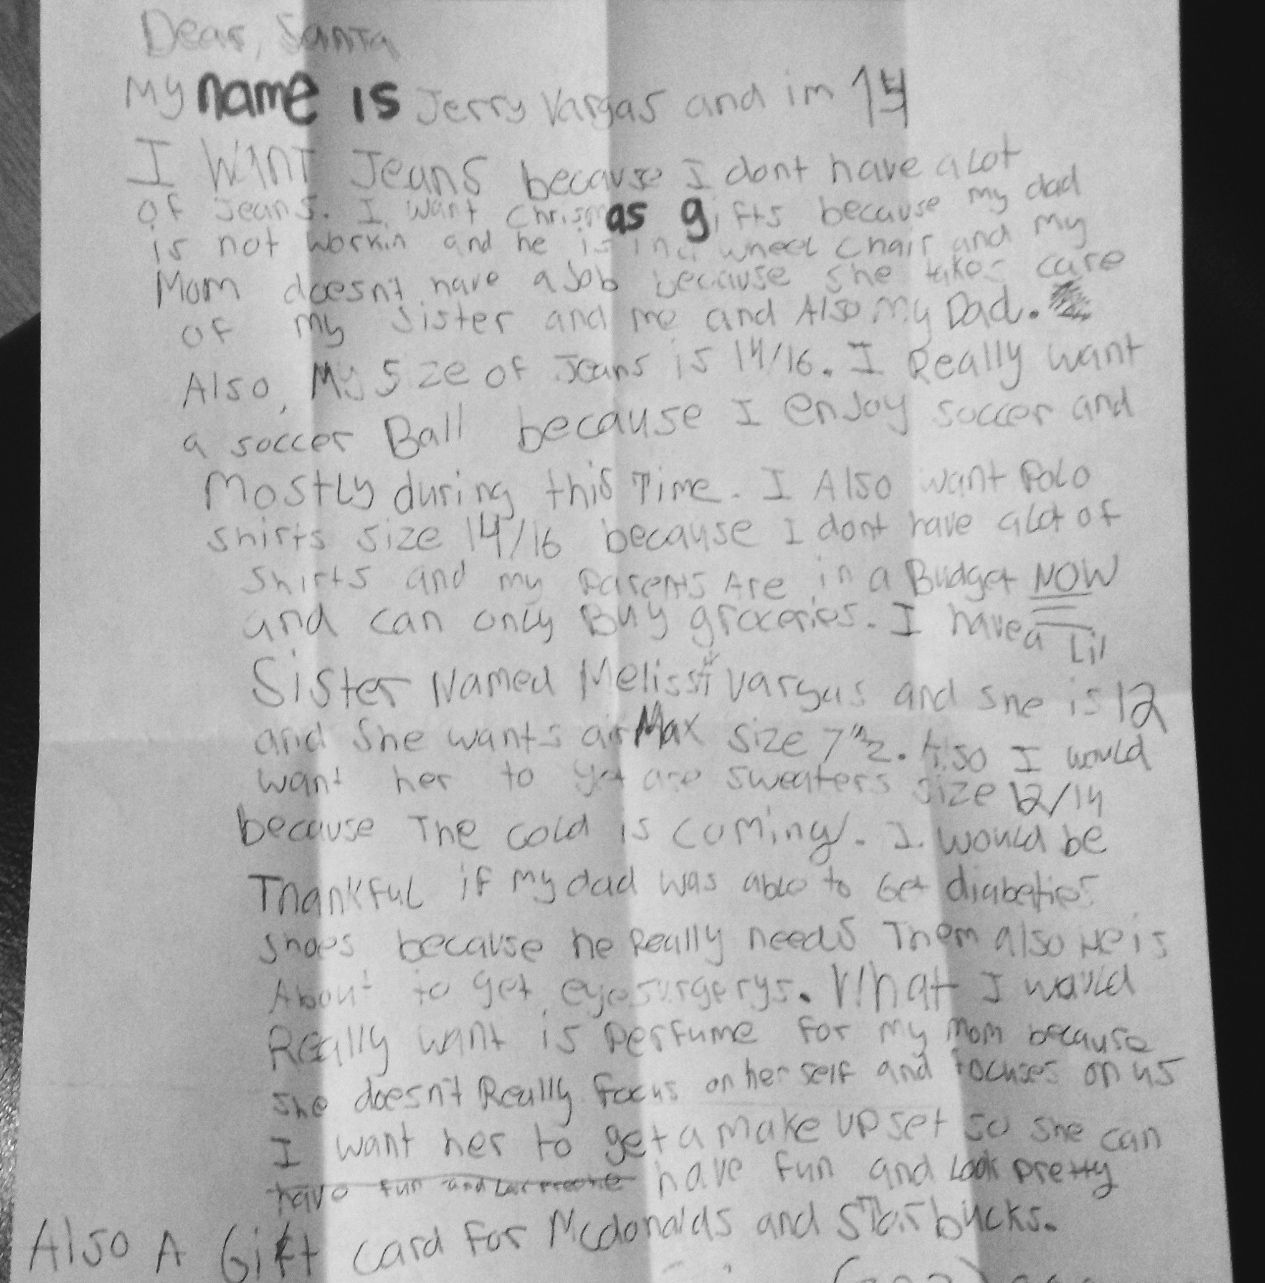 Dear, Santa
My name is Jerry Vargas and im 14
I WANT Jeans because I dont have a lot
of Jeans. I want Chrismas gifts because my dad
is not workin and he is in a wheel chair and my
Mom doesn't have a Job because she takes care
of my sister and me and Also my Dad.
Also, My Size of Jeans is 14/16. I Really want
a soccer Ball because I enjoy soccer and
Mostly during this Time. I Also want Polo
shirts size 14/16 because I dont have a lot of
Shirts and my Parents Are in a Budget NOW
and can only Buy groceries. I have a Lil
Sister Named Melissa Vargas and she is 12
and She wants airMax size 7 1/2. Also I would
want her to get are sweaters size 12/14
because The cold is coming. I would be
Thankful if my dad was able to Get diabetics
shoes because he Really needs Them also He is
About to get eye surgerys. What I would
Really want is Perfume for my mom because
she doesn't Really focus on her self and focuses on us
I want her to get a make up set so she can
have fun and have fun and Look pretty
Also A Gift card for Mcdonalds and STarbucks.